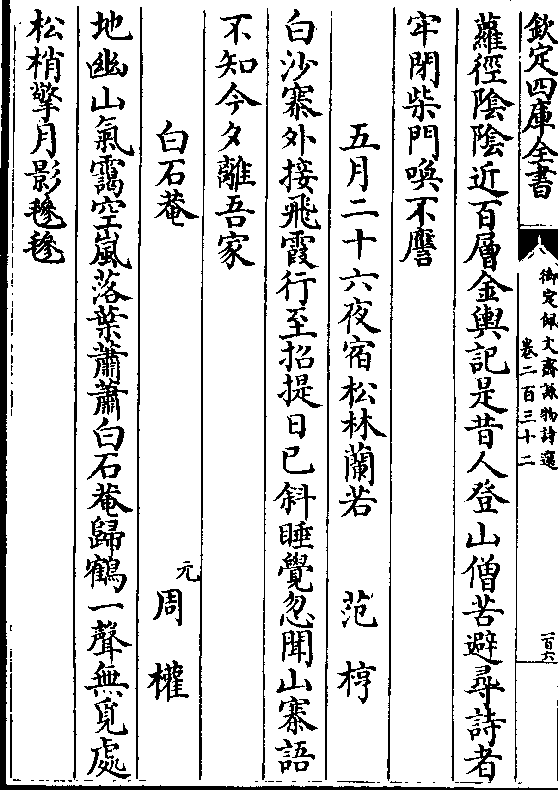 欽定四庫全書
御定佩文齋詠物詩選
卷二百三十二
一百六
蘿徑陰陰近百層金輿記是昔人登山僧苦避尋詩者
牢閉柴門喚不譍
五月二十六夜宿松林蘭若 范梈
白沙寨外接飛霞行至招提日已斜睡覺忽聞山寨語
不知今夕離吾家
白石菴 元周權
地幽山氣靄空嵐落葉蕭蕭白石菴歸鶴一聲無覓處
松梢擎月影毿毿